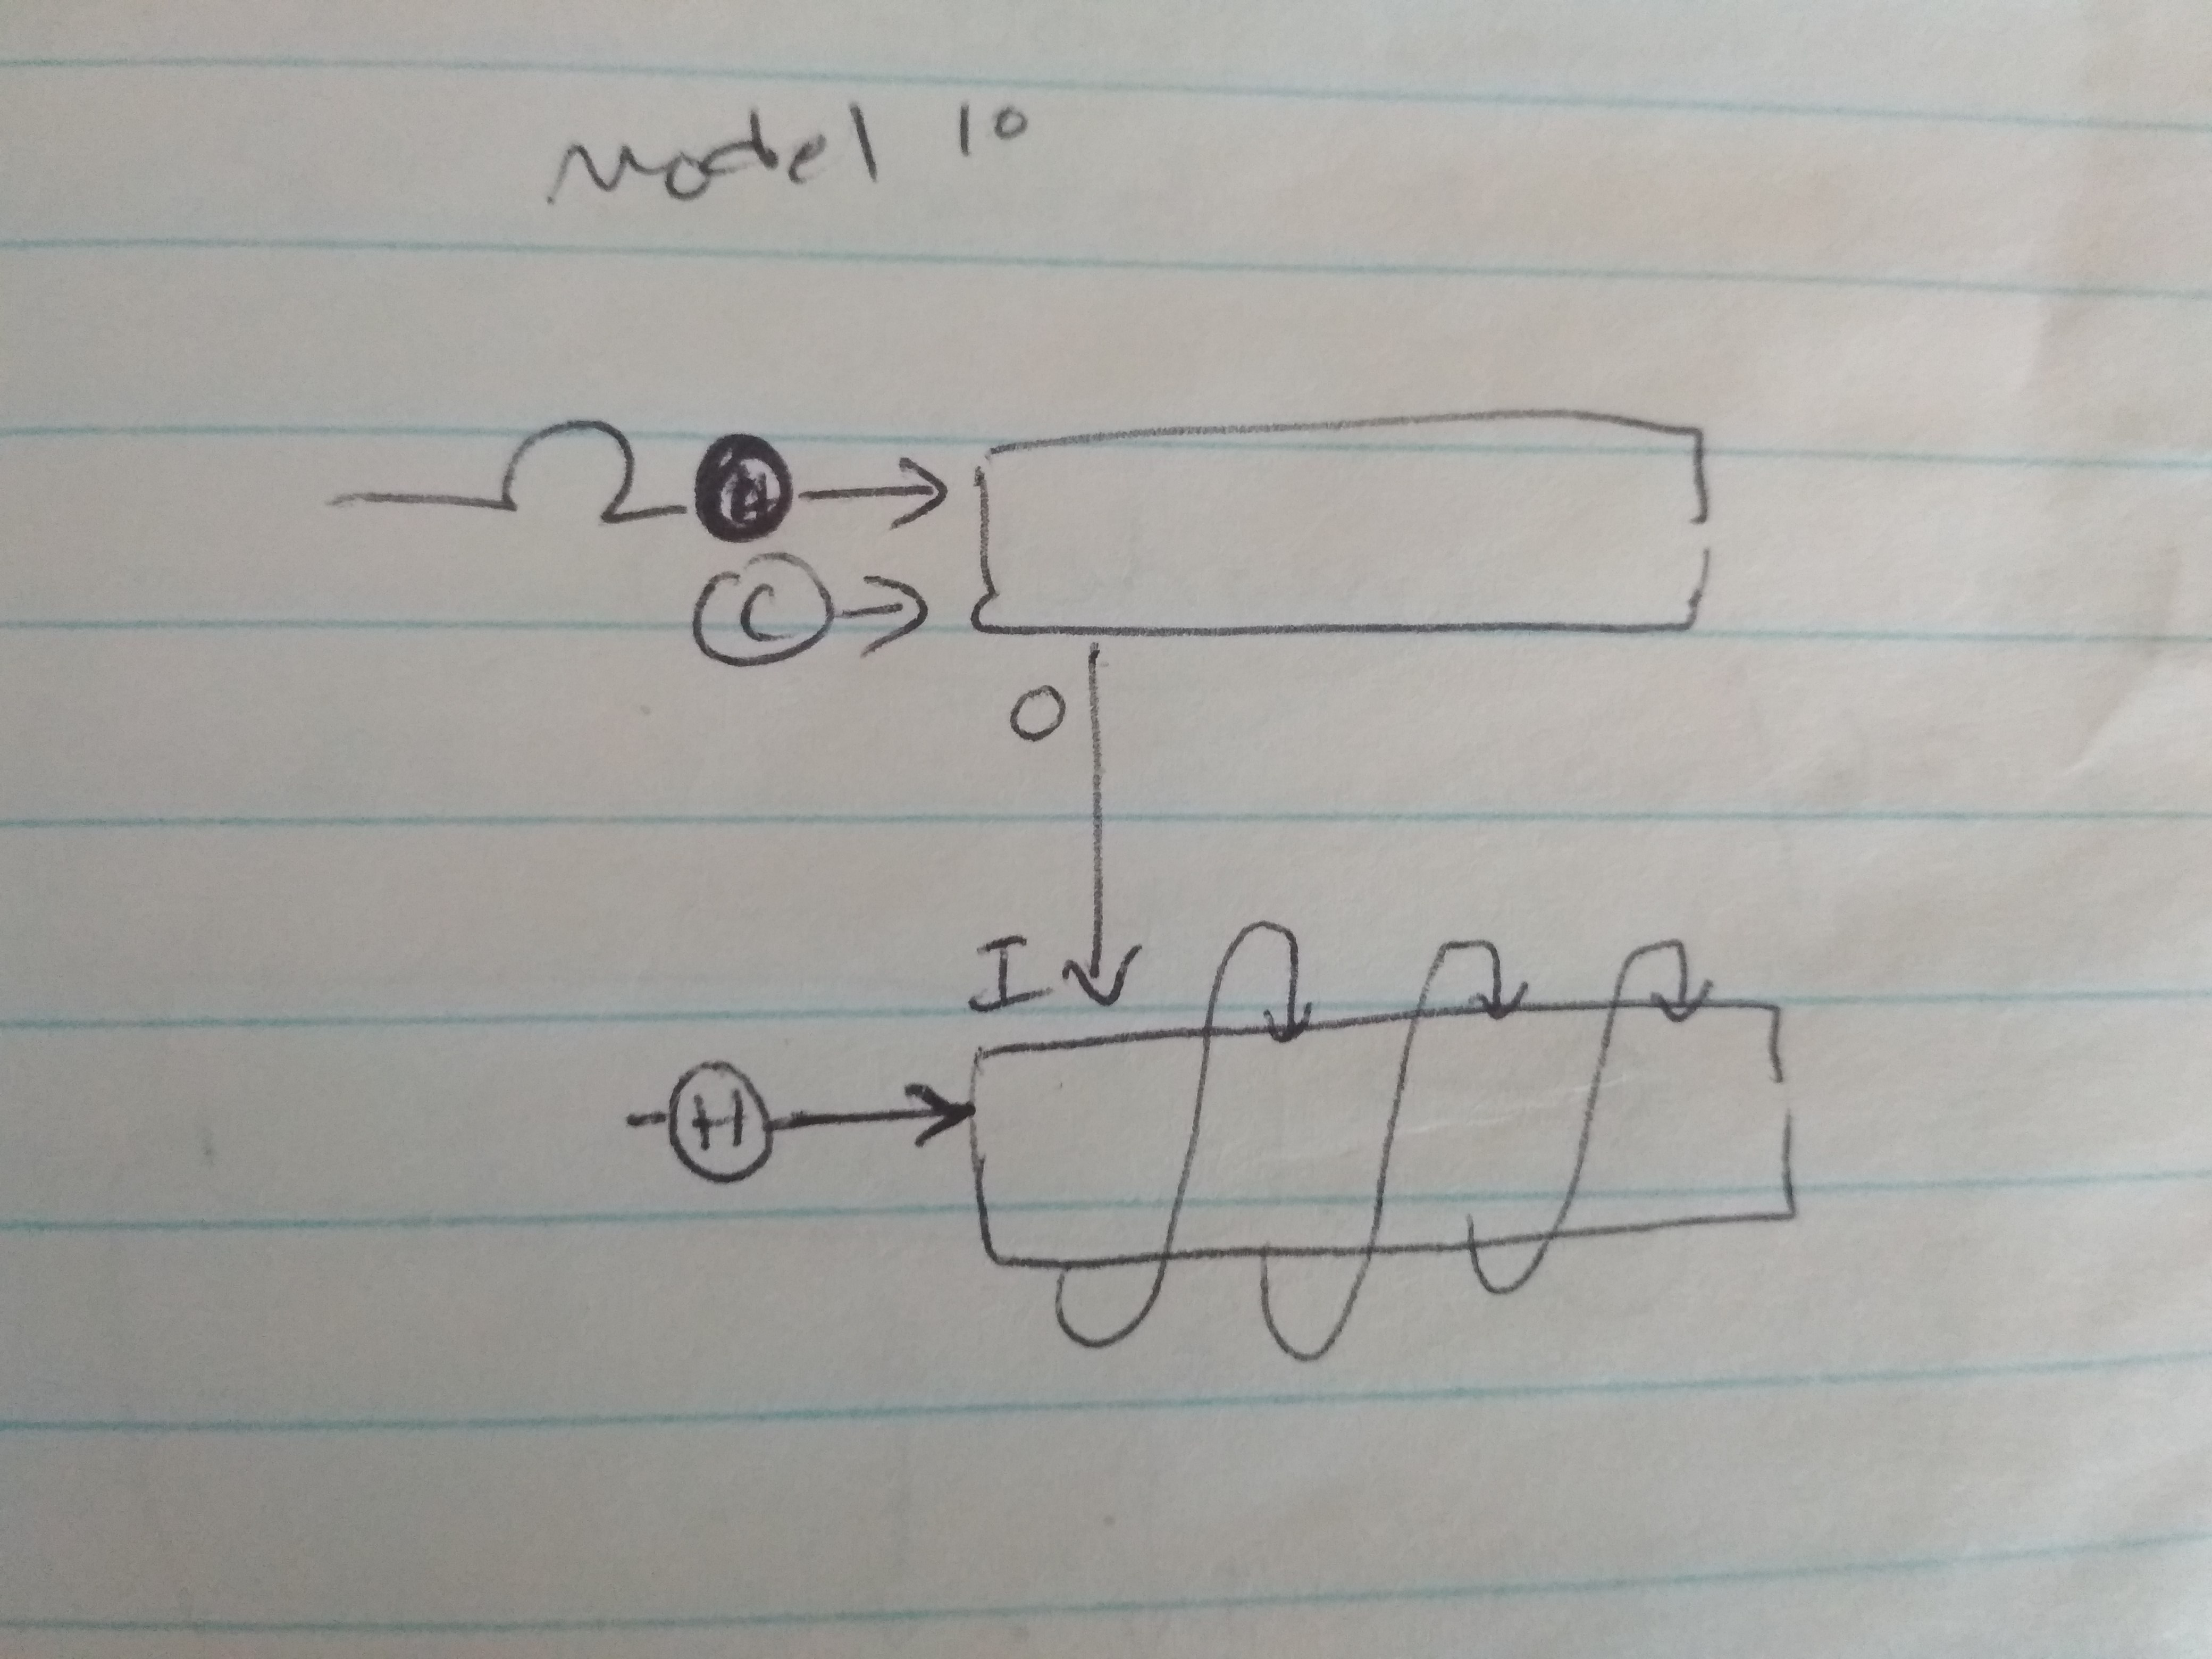 Model 10
C
O
I
H